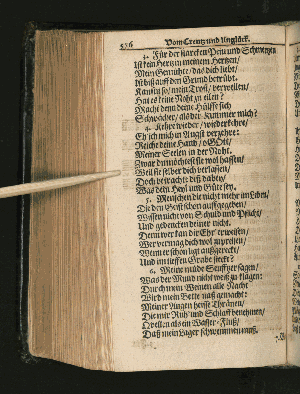 576 Vom Creutz und Unglück.
3. Für der starcken Pein und Schmertzen
Ist kein Hertz in meinem Hertzen/
Mein Gemühte/ das dich liebt/
Ist biß auff den Grund betrübt.
Kanstu so/ mein Trost/ verweilen/
Hat es keine Noht zu eilen?
Macht denn deine Hülffe sich
Schwächer/ als der Kummer mich?
4. Kehre wieder/ wiederkehre/
Eh' ich mich in Angst verzehre:
Reiche deine Hand/ o GOtt/
Meiner Seelen in der Noht.
Zwar du möchtest sie wol hassen/
Weil sie selber dich verlassen/
Doch betrachte diß dabey/
Was dein Heyl und Güte sey.
5. Menschen die nicht mehr im Leben/
Die den Geist schon auffgegeben/
Wissen nicht von Schuld und Pflicht/
Und gedencken deiner nicht.
Denn wer kan die Ehr' erweisen/
Wer vermag dich wol zu preisen/
Wenn er schon ligt außgestreckt/
Und im tieffen Grabe steckt?
6. Meine müde Seufftzer sagen/
Was der Mund nicht weiß zu klagen:
Durch mein Weinen alle Nacht
Wird mein Bette naß gemacht:
Meiner Augen heisse Thränen/
Die mir Ruh' und Schlaff benehmen/
Quellen als ein Wasser-Fluß/
Daß mein Lager schwimmen muß.